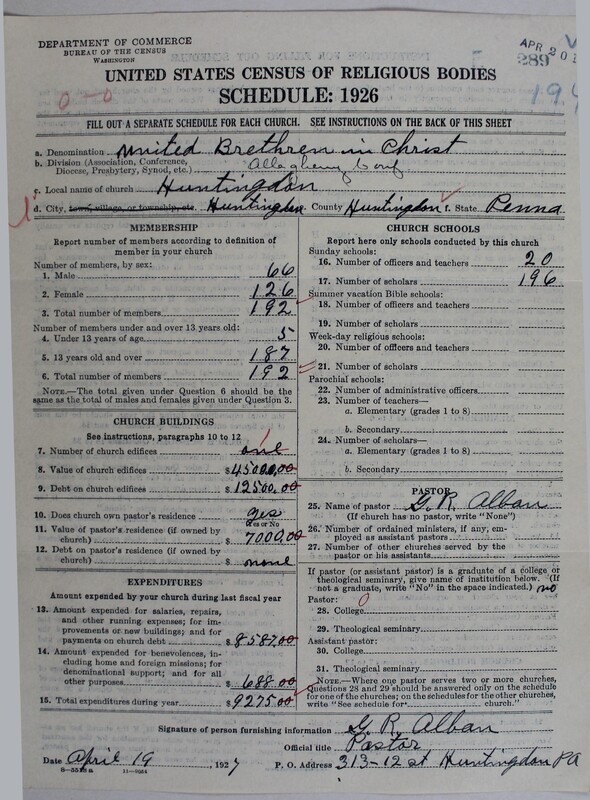 DEPARTMENT OF COMMERCE
BUREAU OF THE CENSUS
WASHINGTON
APR 20
289
UNITED STATES CENSUS OF RELIGIOUS BODIES
SCHEDULE: 1926
0-0
FILL OUT A SEPARATE SCHEDULE FOR EACH CHURCH. SEE INSTRUCTIONS ON THE BACK OF THIS SHEET
a. Denomination United Brethren in Christ
b. Division (Association, Conference, Diocese, Presbytery, Synod, etc.) Allegheny Conf
c. Local name of church Huntingdon
d. City, town, village, or township, etc. Huntingdon County Huntingdon f. State Penna
MEMBERSHIP
Report number of members according to definition of
member in your church
Number of members, by sex:
1. Male 66
2. Female 126
3. Total number of members 192
Number of members under and over 13 years old:
4. Under 13 years of age 5
5. 13 years old and over 187
6. Total number of members 192
NOTE.—The total given under Question 6 should be the
same as the total of males and females given under Question 3.
CHURCH BUILDINGS
See instructions, paragraphs 10 to 12
7. Number of church edifices one
8. Value of church edifices $45000.00
9. Debt on church edifices $12500.00
10. Does church own pastor's residence yes
Yes or No
11. Value of pastor's residence (if owned by
church) $7000.00
12. Debt on pastor's residence (if owned by
church) $none
EXPENDITURES
Amount expended by your church during last fiscal year
13. Amount expended for salaries, repairs,
and other running expenses; for im-
provements or new buildings; and for
payments on church debt $8587.00
14. Amount expended for benevolences, in-
cluding home and foreign missions; for
denominational support; and for all
other purposes $688.00
15. Total expenditures during year $9275.00
CHURCH SCHOOLS
Report here only schools conducted by this church
Sunday schools:
16. Number of officers and teachers 20
17. Number of scholars 196
Summer vacation Bible schools:
18. Number of officers and teachers
19. Number of scholars
Week-day religious schools:
20. Number of officers and teachers
21. Number of scholars
Parochial schools:
22. Number of administrative officers
23. Number of teachers—
a. Elementary (grades 1 to 8)
b. Secondary
24. Number of scholars—
a. Elementary (grades 1 to 8)
b. Secondary
PASTOR
25. Name of pastor G. R. Alban
(If church has no pastor, write "None")
26. Number of ordained ministers, if any, em-
ployed as assistant pastors
27. Number of other churches served by the
pastor or his assistants
If pastor (or assistant pastor) is a graduate of a college or
theological seminary, give name of institution below. (If
not a graduate, write "No" in the space indicated.) no
Pastor: 0
28. College
29. Theological seminary
Assistant pastor:
30. College
31. Theological seminary
NOTE.—Where one pastor serves two or more churches,
Questions 28 and 29 should be answered only on the schedule
for one of the churches; on the schedules for the other churches,
write "See schedule for church."
Signature of person furnishing information G. R. Alban
Official title Pastor
Date April 19, 1927 P. O. Address 313-12 st Huntingdon PA
8-5518a 11-9264